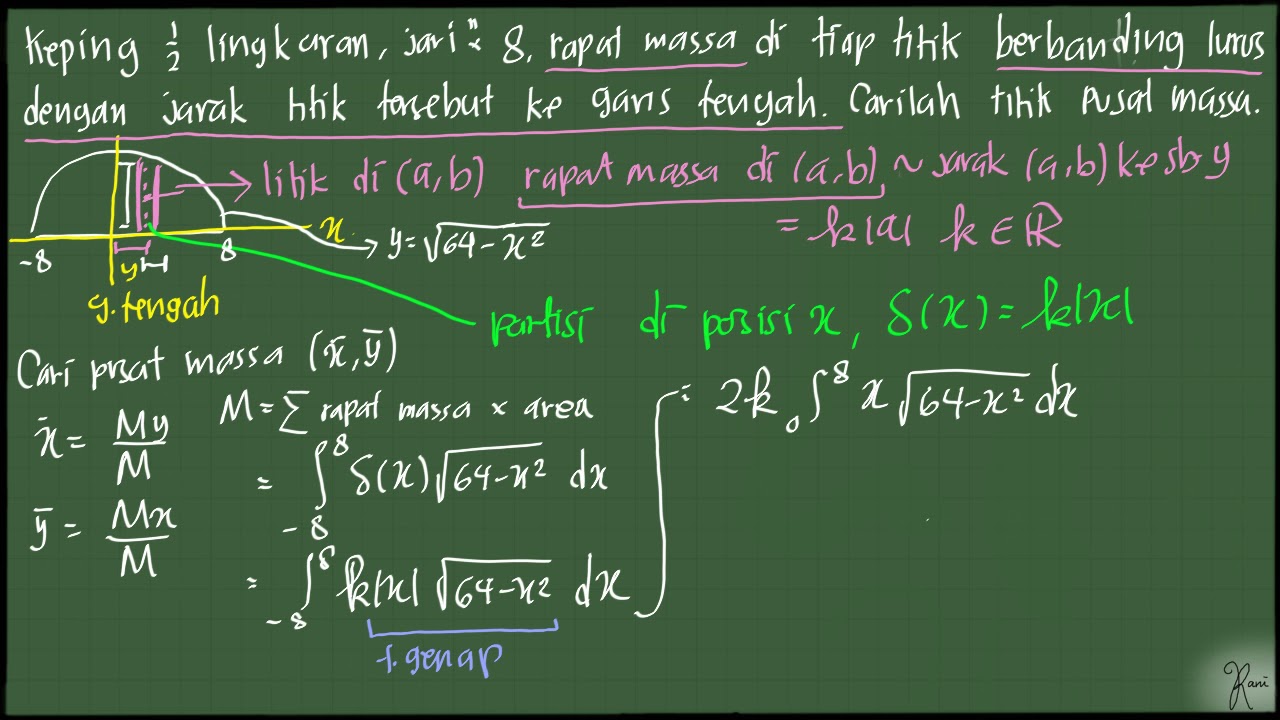 Keping 1/2 lingkaran, jari" 8, rapat massa di tiap titik berbanding lurus
dengan jarak titik tersebut ke garis tengah. Carilah titik pusat massa.
titik di (a,b) rapat massa di (a,b) ~ jarak (a,b) ke sb y
= k|a| k ∈ ℝ
x
y = √(64-x²)
-8 8
y
g. tengah
partisi di posisi x, δ(x) = k|x|
Cari pusat massa (x̄, ȳ)
x̄ = My/M
ȳ = Mx/M
M = Σ rapat massa × area
= ∫₋₈⁸ δ(x) √(64-x²) dx
= ∫₋₈⁸ k|x| √(64-x²) dx
f. genap
= 2k ₀∫⁸ x √(64-x²) dx
Rani